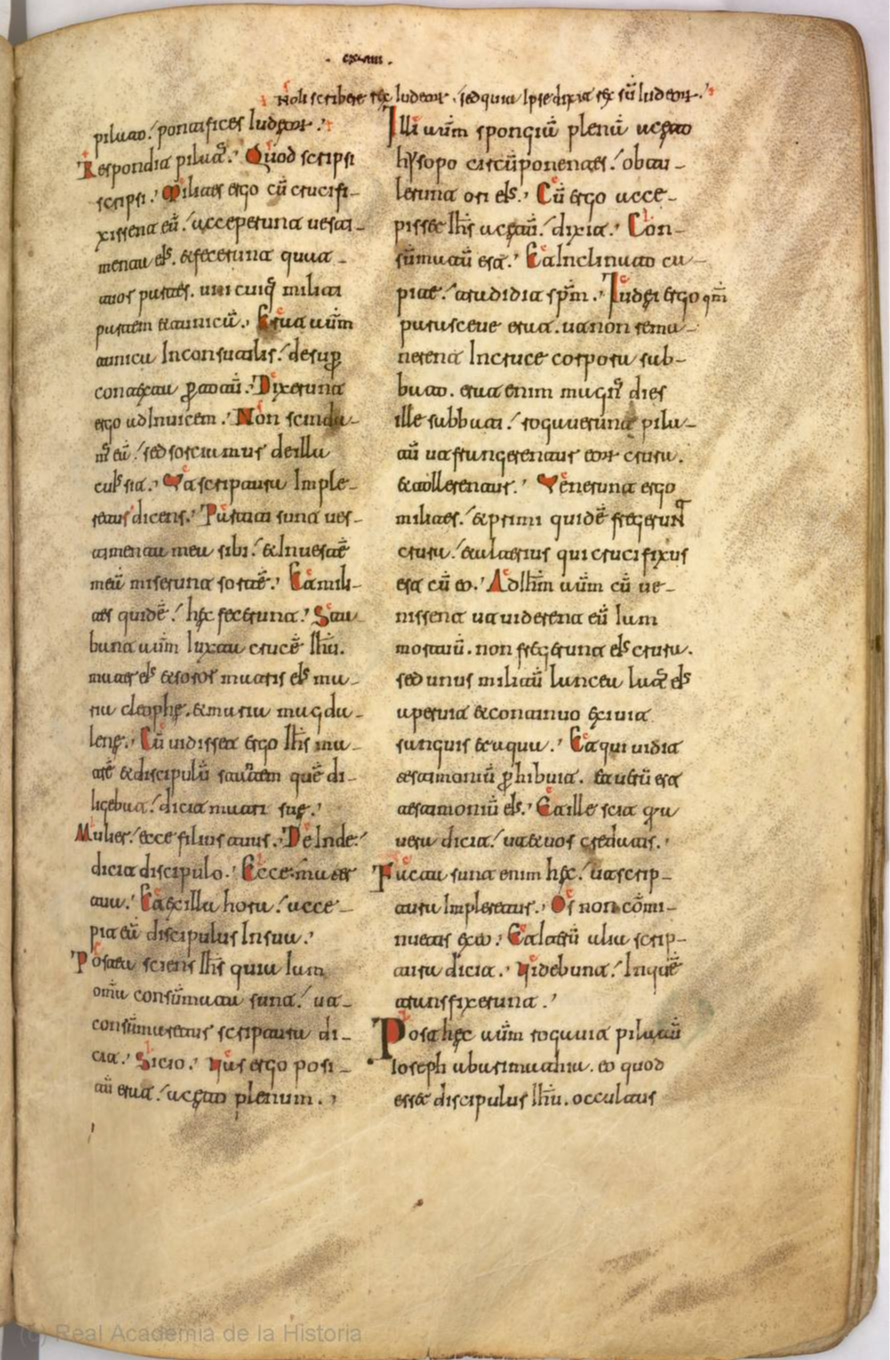 Noli scribere rex iudeor. sed quia ipse dixit rex sū iudeor.
pilato. pontifices iudęor.
Respondit pilat. Quod scripsi
scripsi. Milites ergo cū crucifi-
xissent eū. acceperunt uesti-
menta eIs. et fecerunt quat-
tuor partes. unicuiq militi
partem et tunicā. Erat aūm
tunica Inconsutilis. desup
contexta p totū. Dixerunt
ergo ad Inuicem. Non scinda-
m eā. sed sorciamus de illa
cuIs sit. Vt scriptura Imple-
retur dicens. Partiti sunt ues-
timenta mea sibi. et In uestē
meā miserunt sortē. Et mili-
tes quidē. hęc fecerunt. Stа-
bant aūm iuxta crucē Ihū.
mater eIs et soror matris eIs ma-
ria cleophę. et maria magda-
lenę. Cū uidisset ergo Ihs ma-
trē et discipulū stantem quē di-
ligebat. dicit matri suę.
Mulier. ecce filius tuus. DeInde
dicit discipulo. Ecce mater
tua. Et ex illa hora. acce-
pit eā discipulus In sua.
Postea sciens Ihs quia Iam
omīa consūmata sunt. ut
consūmaretur scriptura di-
cit. Sicio. Uas ergo posi-
tū erat. acęto plenum.
Illi aūm spongiā plenā acęto
hysopo circūponentes. obtu-
lerunt ori eIs. Cū ergo acce-
pissет Ihs acętū. dixit. Con-
sūmatū est. Et Inclinato ca-
pite. tradidit spm. Iudęi ergo qm
parasceue erat. ut non rema-
nerent In cruce corpora sab-
bato. erat enim magn dies
ille sabbati. rogauerunt pila-
tū ut frangerentur eor crura.
et tollerentur. Venerunt ergo
milites. et primi quidē fregerunt
crura. et alterius qui crucifixus
est cū eo. Ad Ihm aūm cū ue-
nissent ut uiderent eū Iam
mortuū. non fregerunt eIs crura.
sed unus militū lancea latꝰ eIs
aperuit et continuo exiuit
sanguis et aqua. Et qui uidit
testimoniū phibuit. et uerū est
testimoniū eIs. Et ille scit qa
uera dicit. ut et uos credatis.
Facta sunt enim hęc. ut scrip-
tura Impleretur. Os non cōmi-
nuetis ex eo. Et alterū alia scrip-
tura dicit. Uidebunt. In quē
transfixerunt.
Post hęc aūm rogauit pilatū
Ioseph ab arimathia. eo quod
esset discipulus Ihū. occultus